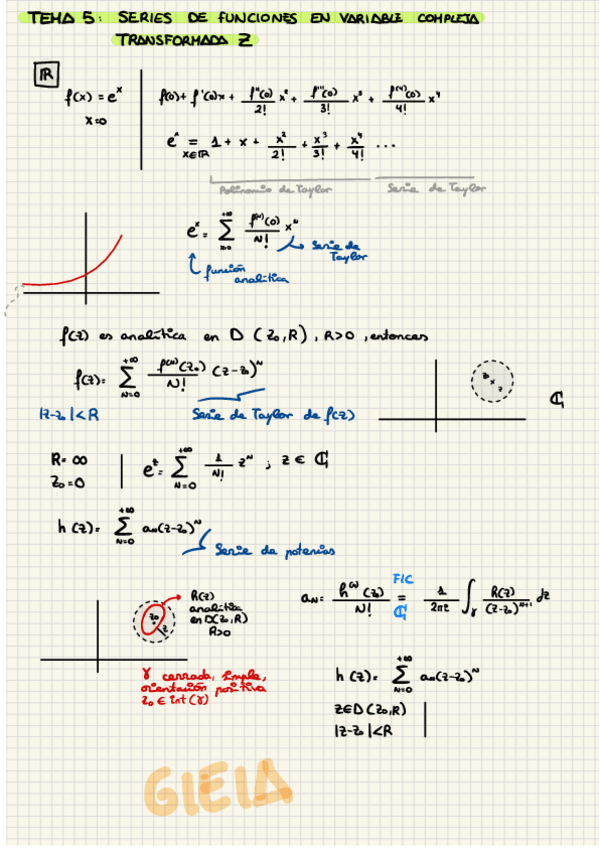 TEMA 5: SERIES DE FUNCIONES EN VARIABLE COMPLEJA
TRANSFORMADA Z
ℝ
f(x) = e^x
x=0
f(0) + f'(0)x + f''(0)/2! x² + f'''(0)/3! x³ + f^(4)(0)/4! x⁴
e^x = 1 + x + x²/2! + x³/3! + x⁴/4! ...
x∈ℝ
Polinomio de Taylor Serie de Taylor
e^x = ∑_{n=0}^{+∞} f^(n)(0)/N! x^n
Serie de Taylor
función analítica
f(z) es analítica en D (z₀,R), R>0, entonces
f(z) = ∑_{N=0}^{+∞} f^(N)(z₀)/N! (z-z₀)^N
|z-z₀|<R
Serie de Taylor de f(z)
z₀
z
ℂ
R = ∞
z₀ = 0
e^z = ∑_{N=0}^{+∞} 1/N! z^N ; z ∈ ℂ
h(z) = ∑_{N=0}^{+∞} a_N(z-z₀)^N
Serie de potencias
z₀
z
h(z)
analítica
en D(z₀,R)
R>0
γ cerrada, simple,
orientación positiva
z₀ ∈ int(γ)
a_N = h^(N)(z₀)/N! = 1/2πi ∫_γ h(z)/(z-z₀)^{N+1} dz
FIC
ℂ
h(z) = ∑_{N=0}^{+∞} a_N(z-z₀)^N
z∈D(z₀,R)
|z-z₀|<R
GIEIA